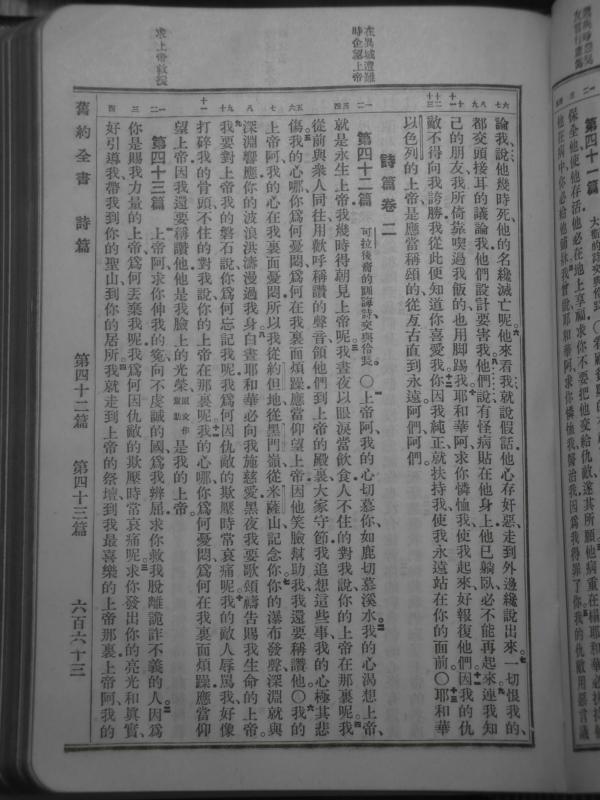 第四十一篇
保全他使他存活他必在地上享福求你不要把他交給仇敵遂其所願
在異域遭難
時企望上帝
求上帝救援
論我說他幾時死他的名纔滅亡呢他來看我就說假話他心存奸惡走到外邊纔說出來一切恨我的
都交頭接耳的議論我他們設計要害我他們說有怪病貼在他身上他已躺臥必不能再起來連我知
己的朋友我所倚靠喫過我飯的也用脚踢我耶和華阿求你憐恤我使我起來好報復他們因我的仇
敵不得向我誇勝我從此便知道你喜愛我你因我純正就扶持我使我永遠站在你的面前〇耶和華
以色列的上帝是應當稱頌的從亙古直到永遠阿們阿們
詩篇卷二
第四十二篇 可拉後裔的訓誨詩交與伶長 〇上帝阿我的心切慕你如鹿切慕溪水我的心渴想上帝
就是永生上帝我幾時得朝見上帝呢我晝夜以眼淚當飲食人不住的對我說你的上帝在那裏呢我
從前與衆人同往用歡呼稱讚的聲音領他們到上帝的殿裏大家守節我追想這些事我的心極其悲
傷我的心哪你爲何憂悶爲何在我裏面煩躁應當仰望上帝因他笑臉幫助我我還要稱讚他〇我的
上帝阿我的心在我裏面憂悶所以我從約但地從黑門嶺從米薩山記念你你的瀑布發聲深淵就與
深淵響應你的波浪洪濤漫過我身白晝耶和華必向我施慈愛黑夜我要歌頌禱告賜我生命的上帝
我要對上帝我的磐石說你爲何忘記我呢我爲何因仇敵的欺壓時常哀痛呢我的敵人辱罵我好像
打碎我的骨頭不住的對我說你的上帝在那裏呢我的心哪你爲何憂悶爲何在我裏面煩躁應當仰
望上帝因我還要稱讚他他是我臉上的光榮 原文作幫助 是我的上帝
第四十三篇 上帝阿求你伸我的冤向不虔誠的國爲我辨屈求你救我脫離詭詐不義的人因爲
你是賜我力量的上帝爲何丟棄我呢我爲何因仇敵的欺壓時常哀痛呢求你發出你的亮光和眞實
好引導我帶我到你的聖山到你的居所我就走到上帝的祭壇到我最喜樂的上帝那裏上帝阿我的
舊約全書 詩篇 第四十二篇 第四十三篇 六百六十三